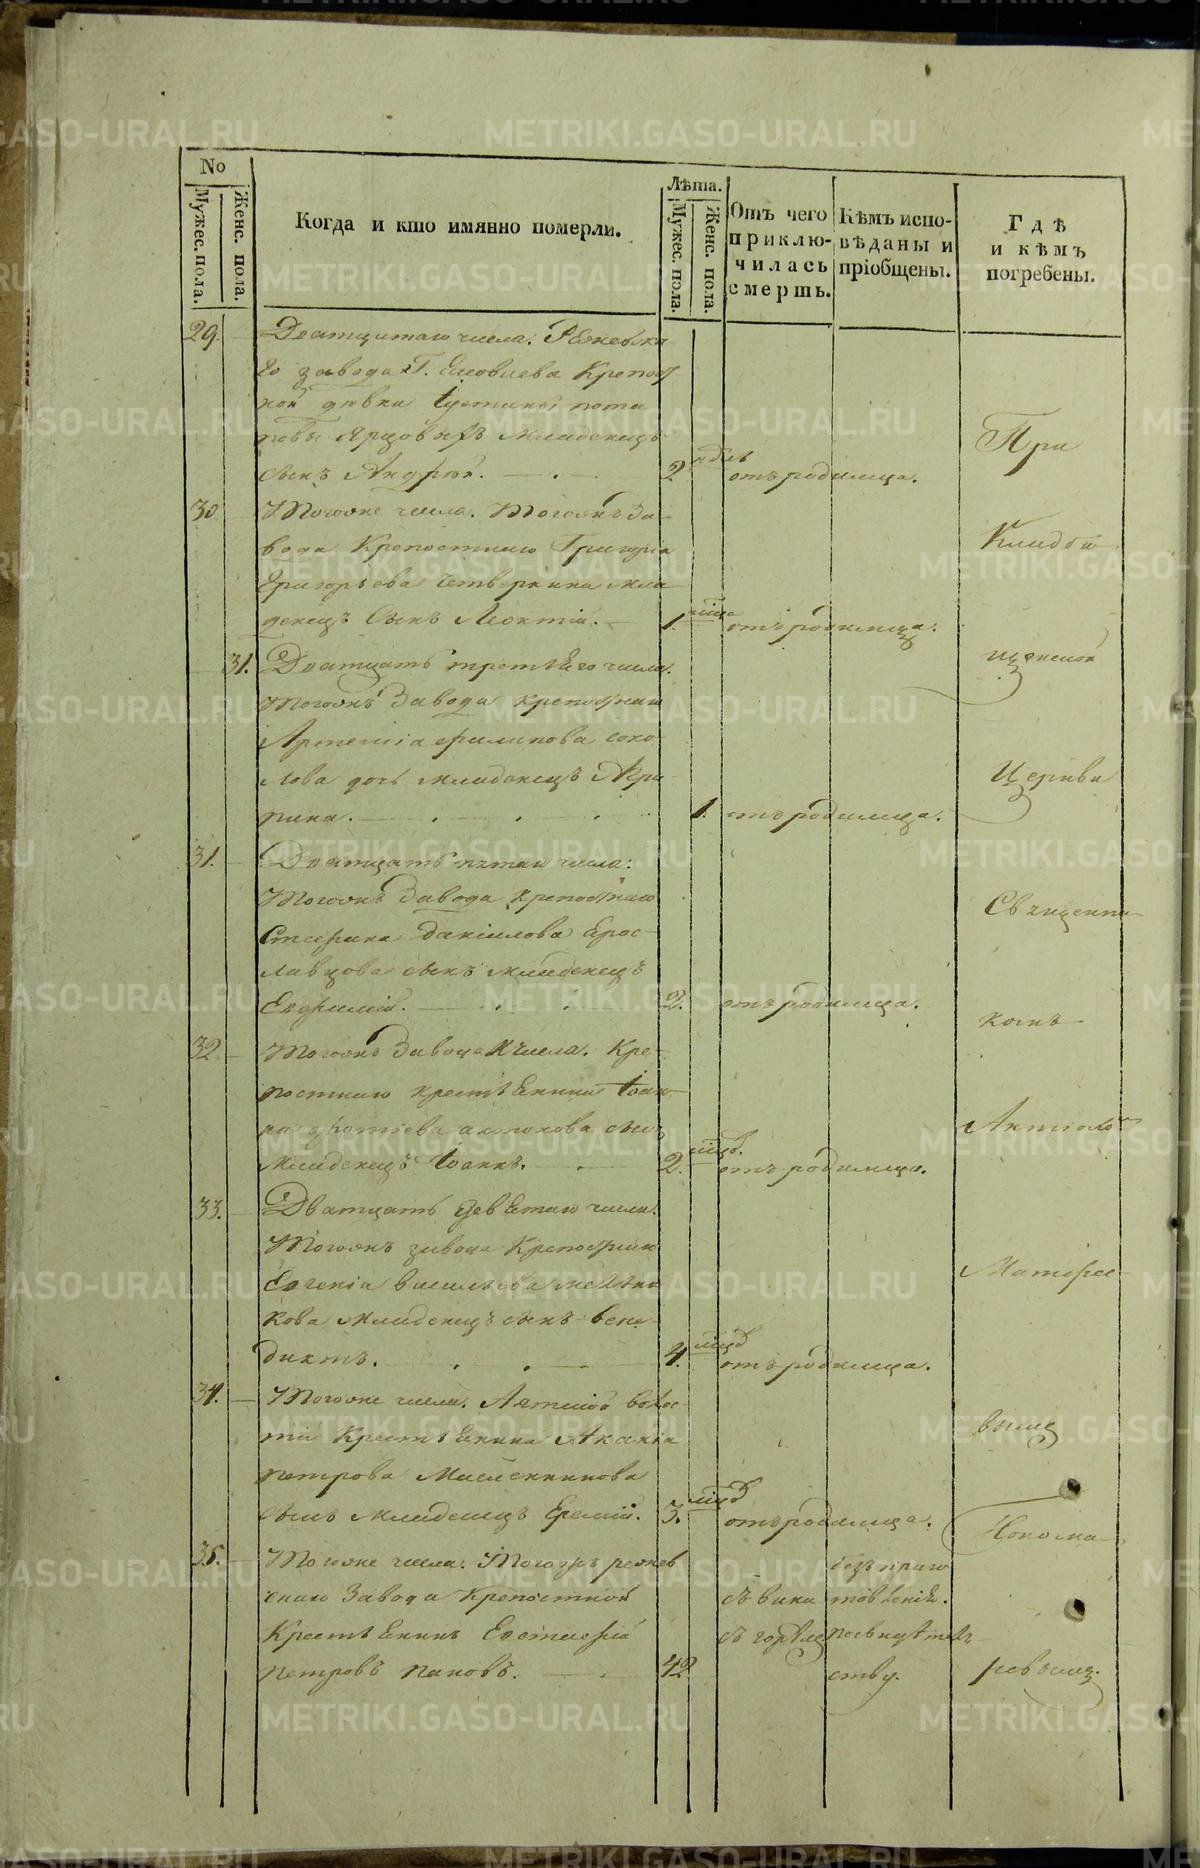 No
Мужес. пола.
Женс. пола.
Когда и кто имянно померли.
Лѣта.
Мужес. пола.
Женс. пола.
Отъ чего приклю-
чилась смерть.
Кѣмъ испо-
вѣданы и
пріобщены.
Гдѣ
и кѣмъ
погребены.
29. Дватцатаго числа. Режевска-
го завода Г. Крепост
ной девки Іустины пота
повы Ярцовыхъ младенецъ
сынъ Андрей. 2 отъ родимца.
При
30 Тогоже числа. Тогожъ За-
вода Крепостнаго Григорья
Григорьева Четверкина мла
денецъ Сынъ Леонтій. 1. отъ родимца.
Кладби
31. Дватцать третьяго числа.
Тогожъ Завода крепостнаго
Артемія филипова соко
лова дочь младенецъ Ири
рина. 1. отъ родимца.
щенской
Церкви
31. Дватцать пятаго числа.
Тогожъ Завода крепостнаго
Стефана Даніилова Ерос
лавцова сынъ младенецъ
Евфимій. 2. отъ родимца.
Священни
комъ
32. Тогожъ Завода и числа. Кре-
постнаго крестьянина Іоан
на антонова сынъ
младенецъ Іоаннъ. 2. мцъ. отъ родимца.
33. Дватцать девятаго числа.
Тогожъ завода Крепостнаго
Евгенія васильева мельни
кова младенецъ сынъ вене-
диктъ. 4. мцъ отъ родимца.
34. Тогоже числа. волос
ти Крестьянина Акакія
петрова Масленникова
сынъ младенецъ Еремій. 3. мцъ отъ родимца.
выше
Понома
35. Тогоже числа. Тогожъ режев
скаго Завода Крепостной
Крестьянинъ Евстафій
петровъ пановъ. 42
съ вина
съ горѣлъ
безъ приго
товленія.
по свидѣтель
ству.
ревымъ.
METRIKI.GASO-URAL.RU